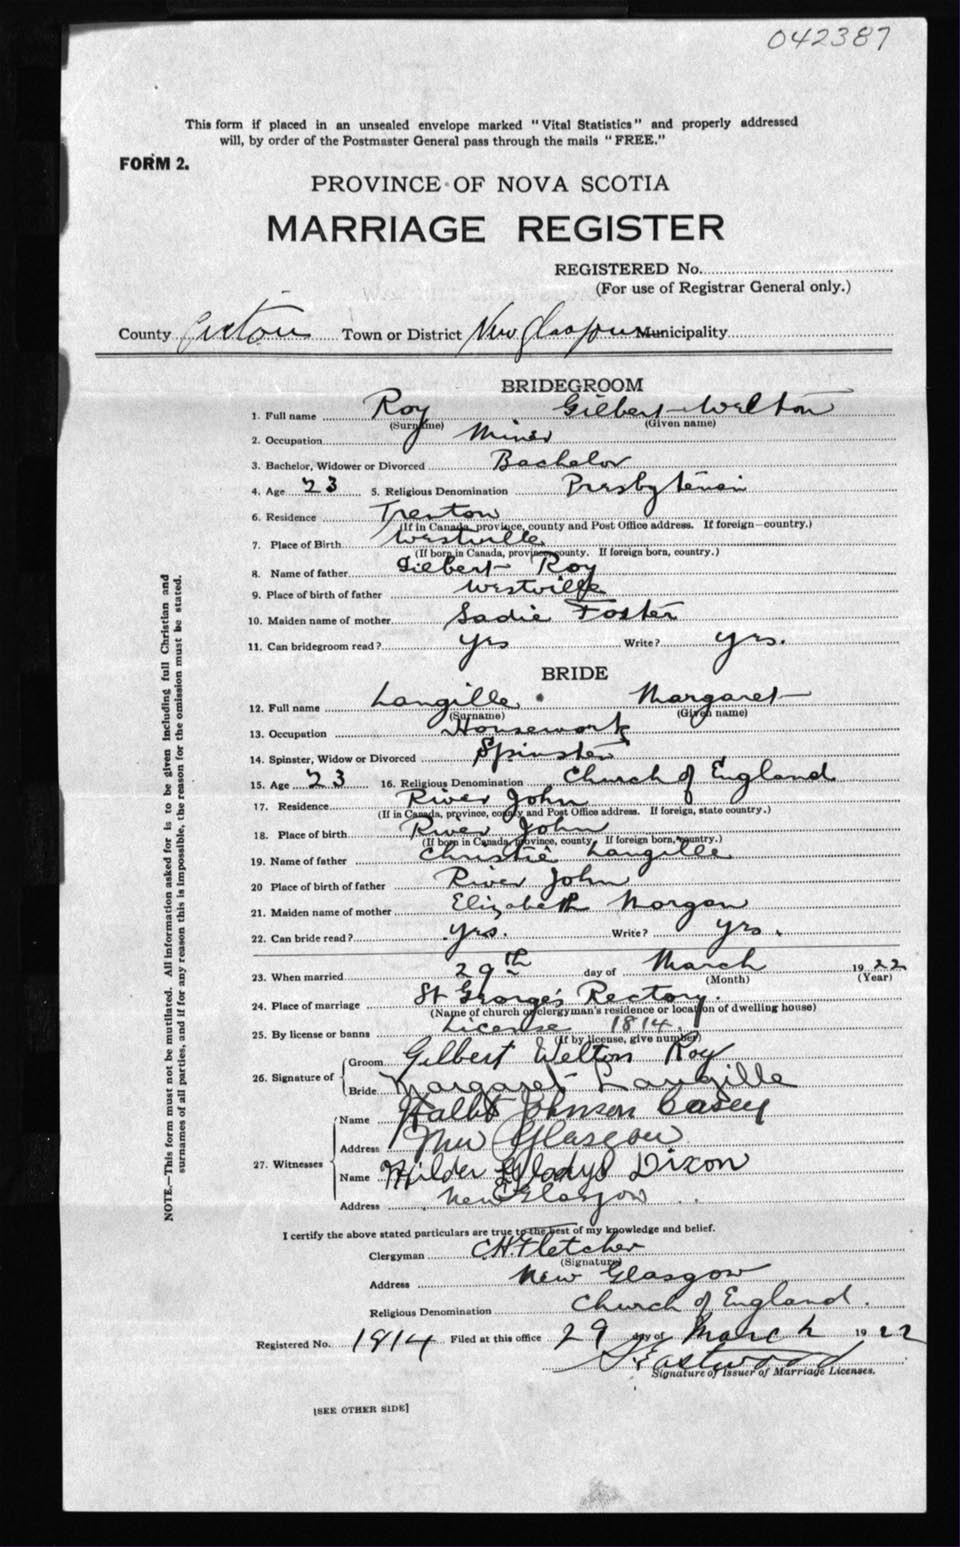 042387
This form if placed in an unsealed envelope marked "Vital Statistics" and properly addressed
will, by order of the Postmaster General pass through the mails "FREE."
FORM 2.
PROVINCE OF NOVA SCOTIA
MARRIAGE REGISTER
REGISTERED No.
(For use of Registrar General only.)
County Pictou Town or District New Glasgow Municipality
BRIDEGROOM
1. Full name Roy Gilbert Welton
(Surname) (Given name)
2. Occupation Miner
3. Bachelor, Widower or Divorced Bachelor
4. Age 23 5. Religious Denomination Presbyterian
6. Residence Trenton
(If in Canada, province, county and Post Office address. If foreign—country.)
7. Place of Birth Westville
(If born in Canada, province, county. If foreign born, country.)
8. Name of father Gilbert Roy
9. Place of birth of father Westville
10. Maiden name of mother Sadie Foster
11. Can bridegroom read? yes Write? yes.
BRIDE
12. Full name Langille Margaret
(Surname) (Given name)
13. Occupation Housework
14. Spinster, Widow or Divorced Spinster
15. Age 23 16. Religious Denomination Church of England
17. Residence River John
(If in Canada, province, county and Post Office address. If foreign, state country.)
18. Place of birth River John
(If born in Canada, province, county. If foreign born, country.)
19. Name of father Christie Langille
20 Place of birth of father River John
21. Maiden name of mother Elizabeth Morgan
22. Can bride read? yes. Write? yes.
23. When married 29th day of March 1922
(Month) (Year)
24. Place of marriage St George's Rectory.
(Name of church or clergyman's residence or location of dwelling house)
25. By license or banns License 1814.
(If by license, give number)
26. Signature of Groom Gilbert Welton Roy
Bride Margaret Langille
27. Witnesses Name Johnson Casey
Address New Glasgow
Name Gladys Dixon
Address New Glasgow
I certify the above stated particulars are true to the best of my knowledge and belief.
Clergyman C.H. Fletcher
(Signature)
Address New Glasgow
Religious Denomination Church of England.
Registered No. 1814 Filed at this office 29 day of March 1922
Eastwood
Signature of Issuer of Marriage Licenses.
[SEE OTHER SIDE]
NOTE.—This form must not be mutilated. All information asked for is to be given including full Christian and
surnames of all parties, and if for any reason this is impossible, the reason for the omission must be stated.